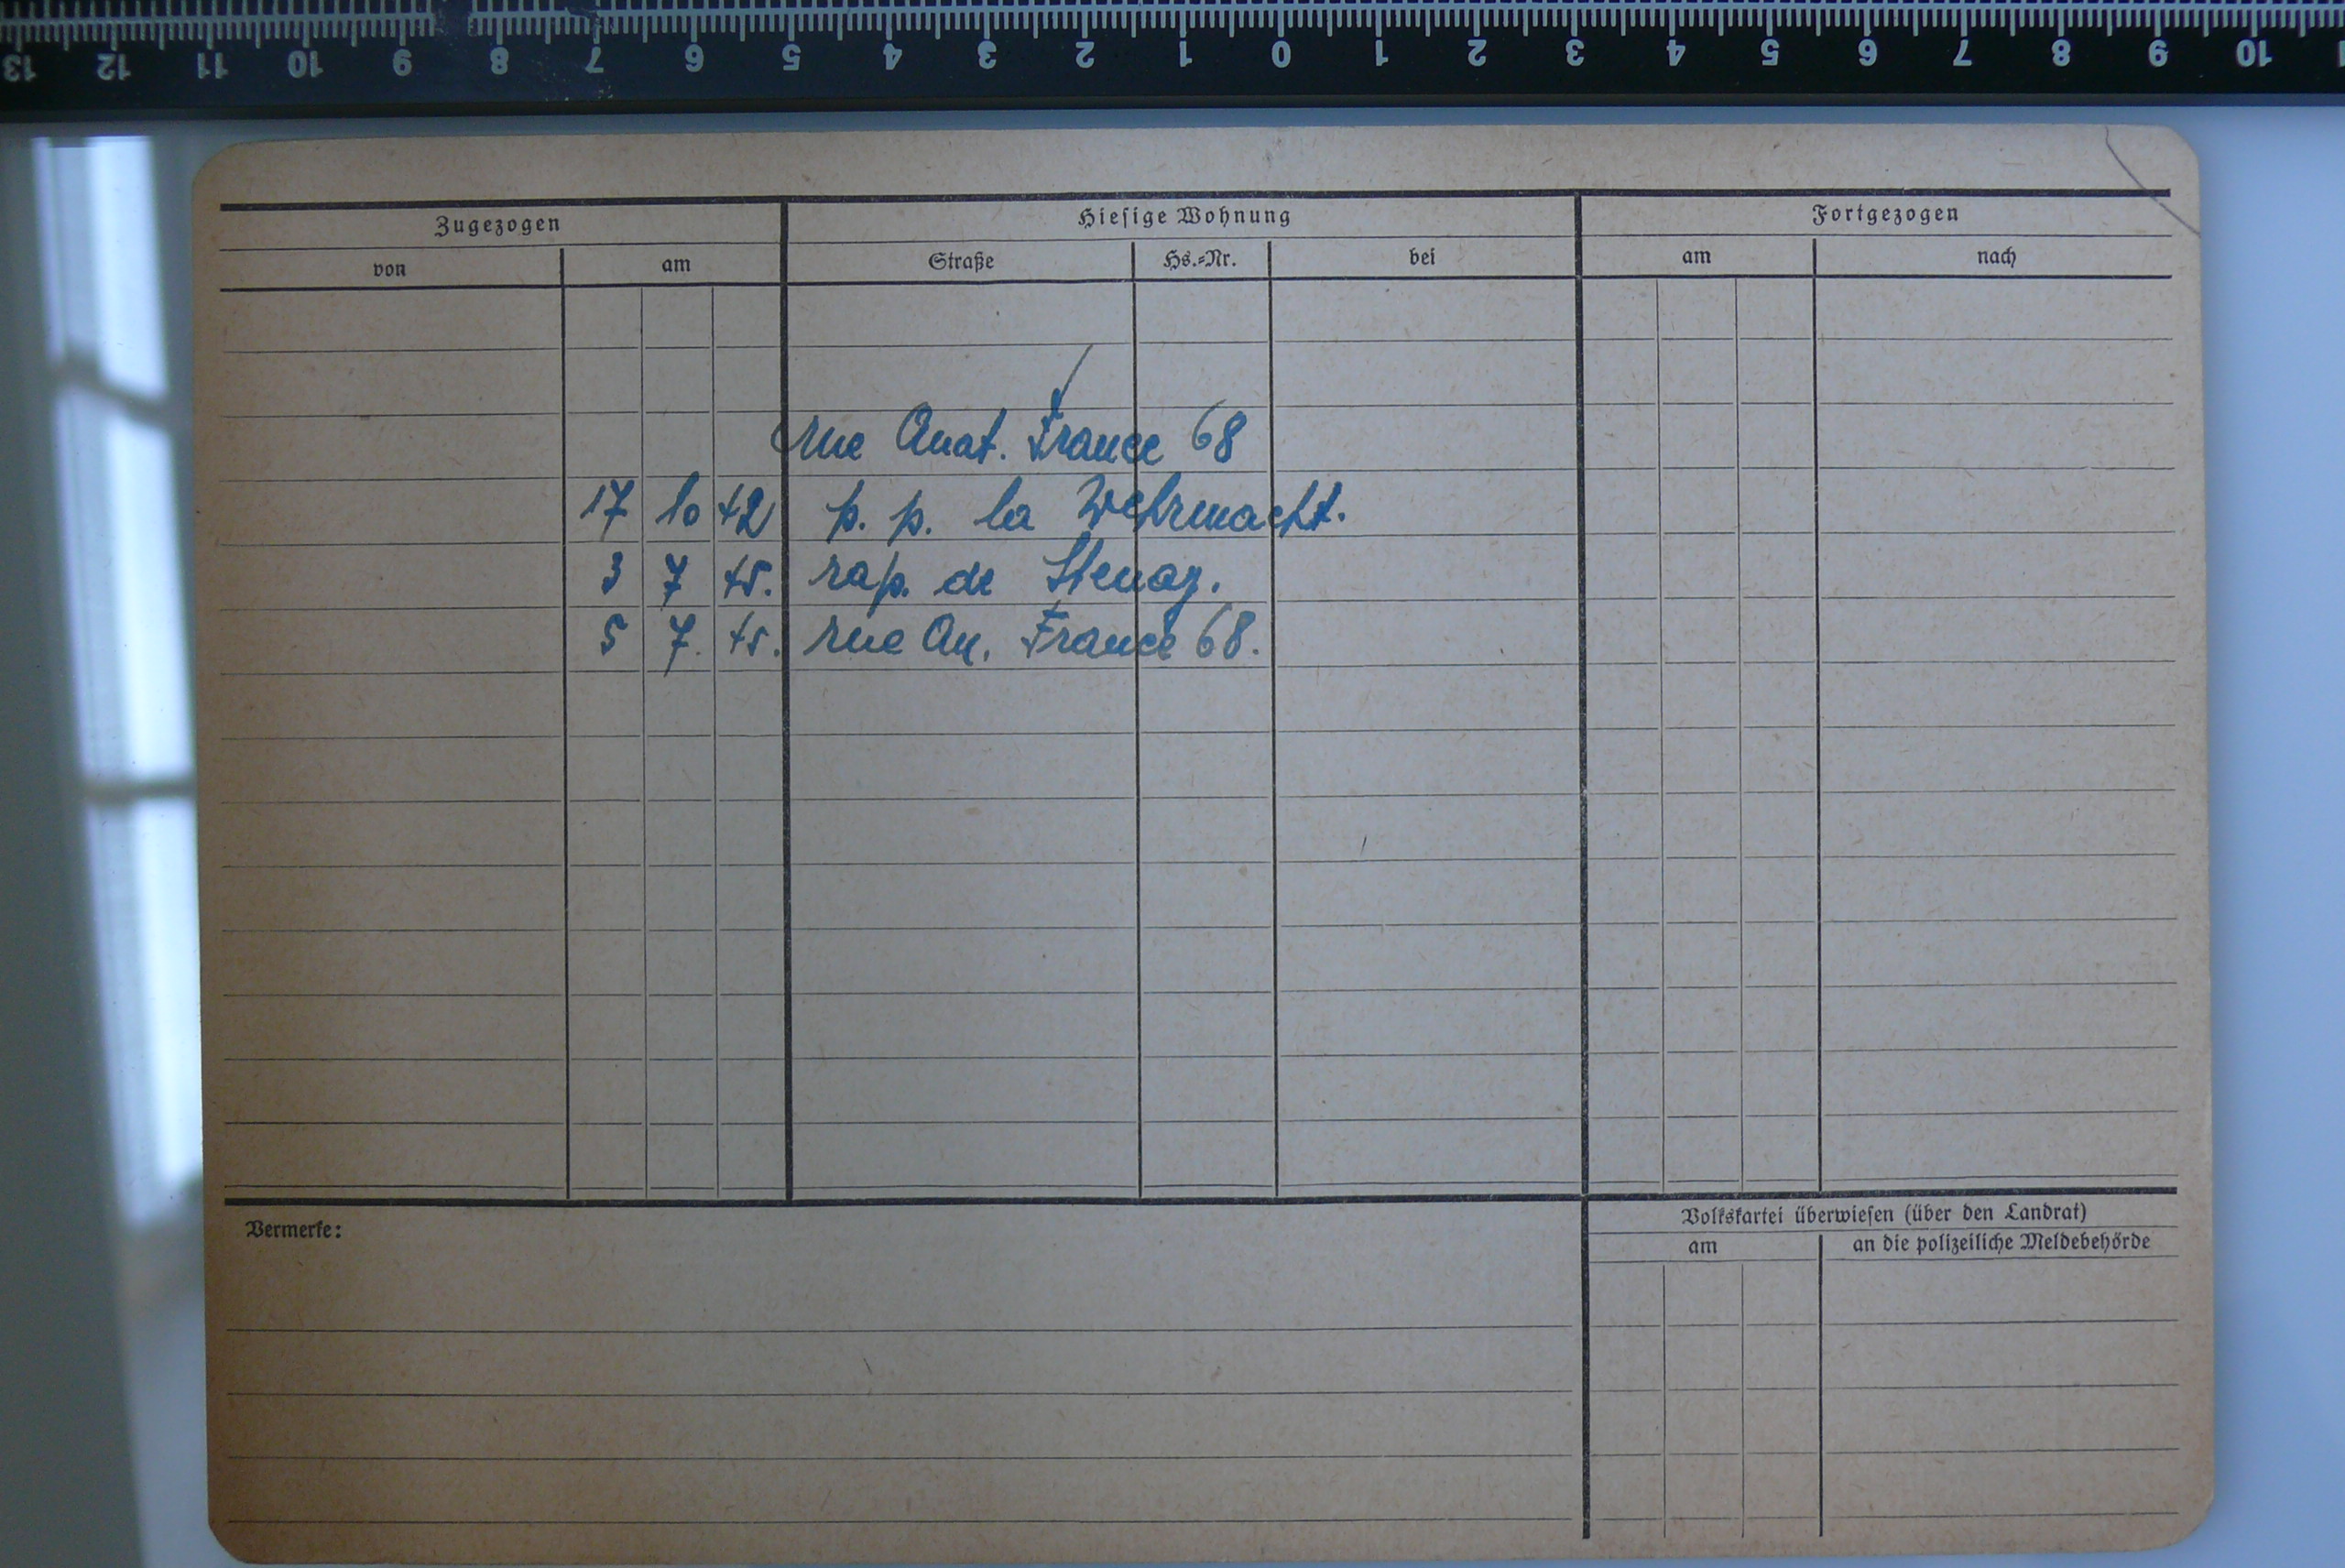 13 12 11 10 9 8 7 6 5 4 3 2 1 0 1 2 3 4 5 6 7 8 9 10
Zugezogen Hiesige Wohnung Fortgezogen
von am Straße Hs.-Nr. bei am nach
rue Anat. France 68
17 10 42 p. p. la Wehrmacht.
3 7 45. rap. de Stenay.
5 7. 45. rue An. France 68.
Vermerke:
Volkskartei überwiesen (über den Landrat)
am an die polizeiliche Meldebehörde